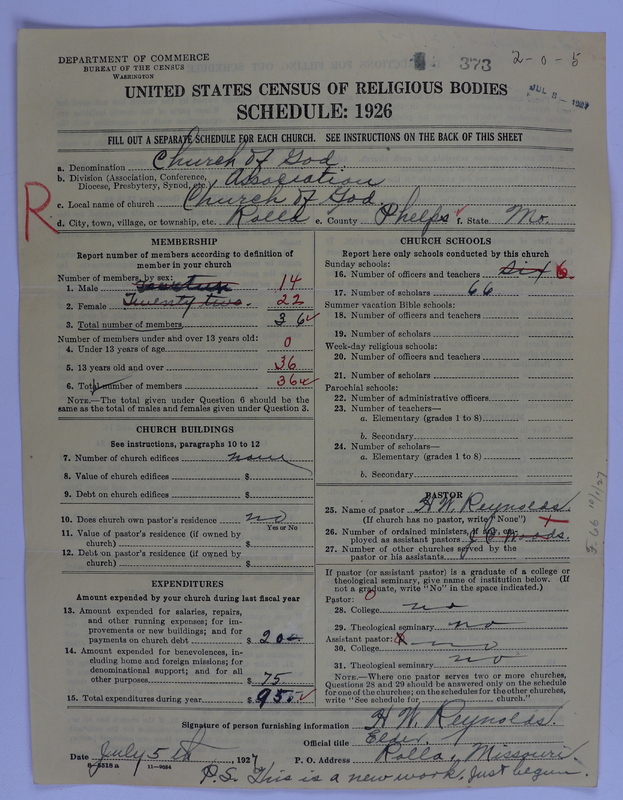 DEPARTMENT OF COMMERCE
BUREAU OF THE CENSUS
WASHINGTON
373
2-0-5
JUL 8 - 1927
UNITED STATES CENSUS OF RELIGIOUS BODIES
SCHEDULE: 1926
FILL OUT A SEPARATE SCHEDULE FOR EACH CHURCH. SEE INSTRUCTIONS ON THE BACK OF THIS SHEET
R
a. Denomination Church of God
b. Division (Association, Conference, Diocese, Presbytery, Synod, etc.) Association
c. Local name of church Church of God
d. City, town, village, or township, etc. Rolla e. County Phelps f. State Mo.
MEMBERSHIP
Report number of members according to definition of
member in your church
Number of members, by sex:
1. Male 14
2. Female Twenty two. 22
3. Total number of members 36
Number of members under and over 13 years old:
4. Under 13 years of age 0
5. 13 years old and over 36
6. Total number of members 36
NOTE.—The total given under Question 6 should be
same as the total of males and females given under Question 3.
CHURCH BUILDINGS
See instructions, paragraphs 10 to 12
7. Number of church edifices none
8. Value of church edifices $
9. Debt on church edifices $
10. Does church own pastor's residence no
Yes or No
11. Value of pastor's residence (if owned by
church) $
12. Debt on pastor's residence (if owned by
church) $
EXPENDITURES
Amount expended by your church during last fiscal year
13. Amount expended for salaries, repairs,
and other running expenses; for im-
provements or new buildings; and for
payments on church debt $ 20
14. Amount expended for benevolences, in-
cluding home and foreign missions; for
denominational support; and for all
other purposes $ 75
15. Total expenditures during year $ 95
CHURCH SCHOOLS
Report here only schools conducted by this church
Sunday schools:
16. Number of officers and teachers six 6
17. Number of scholars 66
Summer vacation Bible schools:
18. Number of officers and teachers
19. Number of scholars
Week-day religious schools:
20. Number of officers and teachers
21. Number of scholars
Parochial schools:
22. Number of administrative officers
23. Number of teachers—
a. Elementary (grades 1 to 8)
b. Secondary
24. Number of scholars—
a. Elementary (grades 1 to 8)
b. Secondary
PASTOR
25. Name of pastor H W. Reynolds.
(If church has no pastor, write "None")
26. Number of ordained ministers, if any, em-
ployed as assistant pastors J C Woods.
27. Number of other churches served by the
pastor or his assistants
If pastor (or assistant pastor) is a graduate of a college or
theological seminary, give name of institution below. (If
not a graduate, write "No" in the space indicated.)
Pastor:
28. College no
29. Theological seminary no
Assistant pastor:
30. College no
31. Theological seminary no
NOTE.—Where one pastor serves two or more churches,
Questions 28 and 29 should be answered only on the schedule
for one of the churches; on the schedules for the other churches,
write "See schedule for church."
Signature of person furnishing information H W. Reynolds.
Official title Elder
Date July 5th, 1927 P. O. Address Rolla, Missouri.
8-5318 a 11-9034
P.S. This is a new work. Just begun.